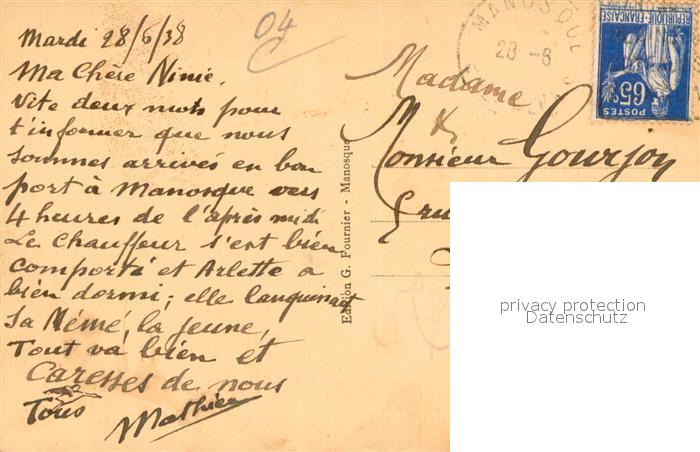 Mardi 28/6/38
04
Ma Chère Ninie,
Vite deux mots pour
t'informer que nous
sommes arrivés en bon
port à Manosque vers
4 heures de l'après midi
Le Chauffeur s'est bien
comporté et Arlette a
bien dormi; elle languissait
sa Mémé, la jeune,
Tout va bien et
Caresses de nous
Tous
Mathieu
Edition G. Fournier - Manosque
MANOSQUE
28-6
REPUBLIQUE-FRANÇAISE
65c
POSTES
Madame
&
Monsieur Gourjon
privacy protection
Datenschutz